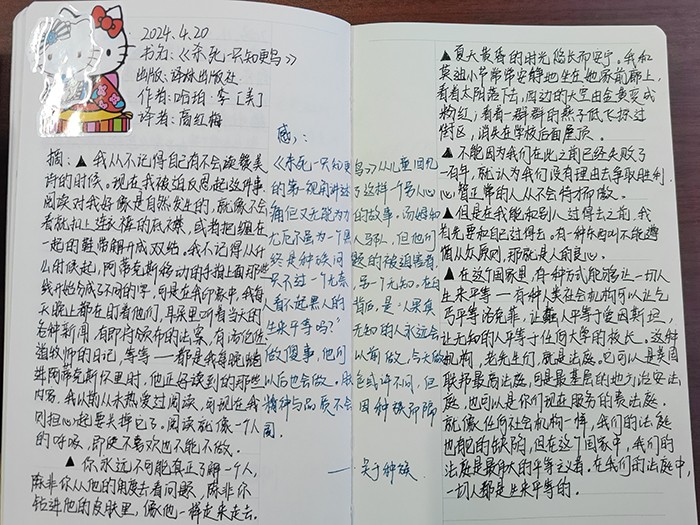 2024.4.20
书名:《杀死一只知更鸟》
出版:译林出版社
作者:哈珀·李[美]
译者:高红梅
摘:▲我从不记得自己有不会读赞美
诗的时候。现在我被迫反思起这件事,
阅读对我好像是自然发生的,就像不会
看就扣上连衣裤的后裆,或者把缠在
一起的鞋带解开成双结。我不记得从什
么时候起,阿蒂克斯移动的手指上面那些
线开始分成了不同的字,可是在我印象中,我每
天晚上都在盯着他们,耳朵里听着当天的
各种新闻、有即将颁布的法案、有洛伦佐·
道牧师的日记,等等——都是我每晚蜷
进阿蒂克斯怀里时,他正好读到的那些
内容。我以前从未热爱过阅读,可现在我
则担心起要失掉它了。阅读就像一个人
的呼吸,即使不喜欢也不能不做。
▲你永远不可能真正了解一个人,
除非你从他的角度去看问题,除非你
钻进他的皮肤里,像他一样走来走去。
感:
《杀死一只知更鸟》从儿童回忆
的第一视角讲述了这样一个另人心
痛但又无能为力的故事。汤姆和
尤厄 虽为一个黑人 队,但他们
终是种族问题的被迫害者,
只不过一个无辜另一个无知。在白
人看不起黑人的背后,是:“人果真
生来平等吗?”无知的人永远会
做傻事,他们以前做,今天做
以后也会做。肤色或许不同,但
精神与品质不会因种族而隔
阂。
——关于种族
▲夏天黄昏的时光悠长而安宁。我和
莫迪小姐常常安静地坐在她家前廊上,
看着太阳落下去,西边的天空由金黄变成
粉红;看着一群群的燕子低飞掠过
街区,消失在学校后面屋顶。
▲不能因为我们在此之前已经失败了
一百年,就认为我们没有理由去争取胜利
心智正常的人从不会恃才而傲。
▲但是在我能和别人过得去之前,我
首先要和自己过得去。有一种东西叫不能遵
循从众原则,那就是人的良心。
▲在这个国家里,有种方式能够让一切人
生来平等——有种人类社会机构可以让乞
丐平等洛克菲,让蠢人平等于爱因斯坦,
让无知的人平等于任何大学的校长。这种
机构,老先生们,就是法庭。它可以是美国
联邦最高法庭,可是最基层的地方治安法
庭,也可以是你们现在服务的奏法庭。
就像任何社会机构一样,我们的法庭
也有它的缺陷,但在这个国家中,我们的
法庭是最伟大的平等主义者。在我们的法庭中,
一切人都是生来平等的。